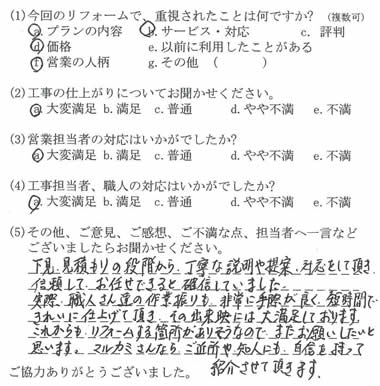 (1)今回のリフォームで、重視されたことは何ですか? (複数可)
a. プランの内容 b. サービス・対応 c. 評判
d. 価格 e. 以前に利用したことがある
f. 営業の人柄 g. その他 ( )
(2)工事の仕上がりについてお聞かせください。
a. 大変満足 b. 満足 c. 普通 d. やや不満 e. 不満
(3)営業担当者の対応はいかがでしたか?
a. 大変満足 b. 満足 c. 普通 d. やや不満 e. 不満
(4)工事担当者、職人の対応はいかがでしたか?
a. 大変満足 b. 満足 c. 普通 d. やや不満 e. 不満
(5)その他、ご意見、ご感想、ご不満な点、担当者へ一言など
ございましたらお聞かせください。
下見、見積もりの段階から、丁寧な説明や提案、対応をして頂き
信頼して、お任せできると確信していました。
実際、職人さん達の作業振りも、非常に手際が良く、短時間で
きれいに仕上げて頂き、その出来映には大満足しております。
これからも、リフォームする箇所がありそうなので、またお願いしたいと
思います。マルカミさんなら、ご近所や知人にも、自信を持って
紹介させて頂きます。
ご協力ありがとうございました。